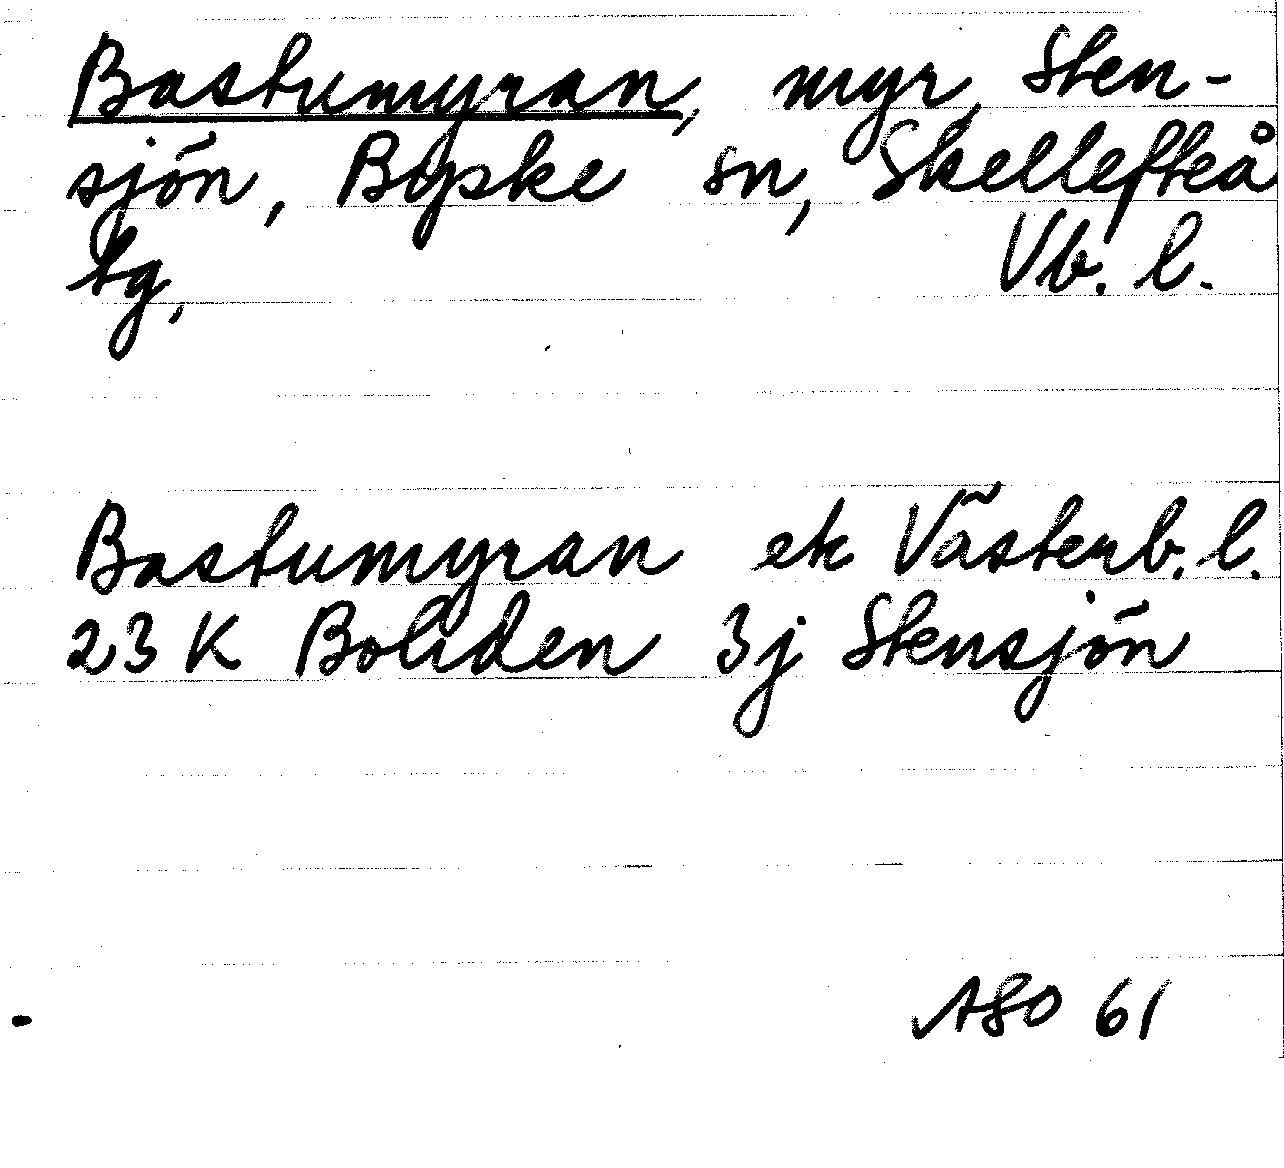 Bastumyran, myr, Sten-
sjön, Byske sn, Skellefteå
tg, Vb. l.
Bastumyran ek Västerb. l.
23 K Boliden 3j Stensjön
ASO 61